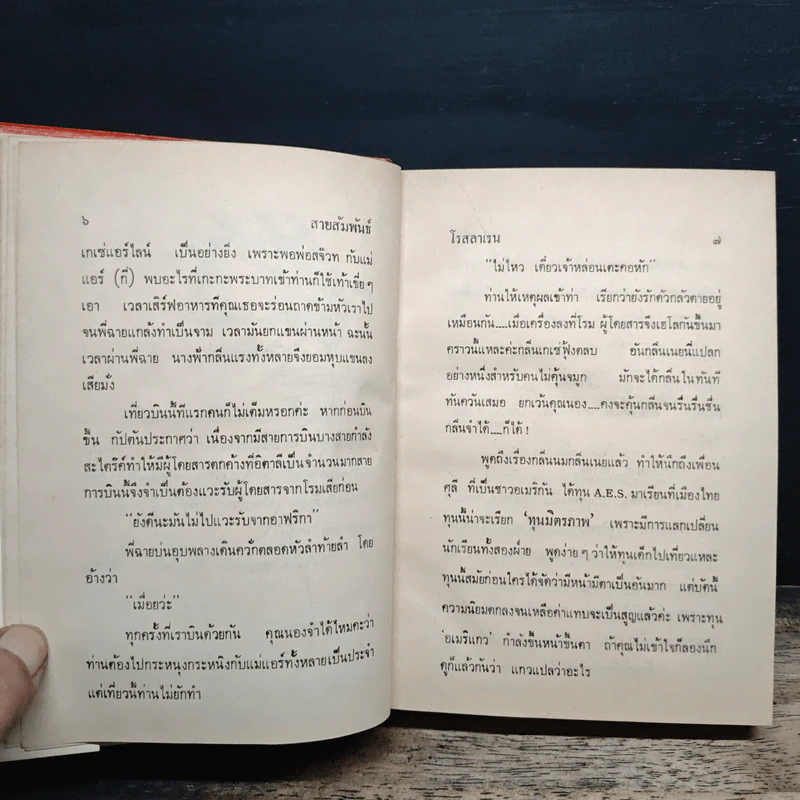 ๖ สายสัมพันธ์
เกเซ่แอร์ไลน์ เป็นอย่างยิ่ง เพราะพอพ่อสจ๊วท กับแม่
แอร์ (กี่) พบอะไรที่เกะกะพระบาทเข้าท่านก็ใช้เท้าเขี่ยๆ
เอา เวลาเสิร์ฟอาหารที่คุณเธอจะร่อนถาดข้ามหัวเราไป
จนพี่ฉายแกล้งทำเป็นจาม เวลามันยกแขนผ่านหน้า ฉะนั้น
เวลาผ่านพี่ฉาย นางฟ้ากลิ่นแรงทั้งหลายจึงยอมหุบแขนลง
เสียมั่ง
เที่ยวบินนี้ทีแรกคนก็ไม่เต็มหรอกค่ะ หากก่อนบิน
ขึ้น กัปตันประกาศว่า เนื่องจากมีสายการบินบางสายกำลัง
สะไตร๊ค์ทำให้มีผู้โดยสารตกค้างที่อิตาลีเป็นจำนวนมากสาย
การบินนี้จึงจำเป็นต้องแวะรับผู้โดยสารจากโรมเสียก่อน
“ยังดีนะมันไม่ไปแวะรับจากอาฟริกา”
พี่ฉายบ่นอุบพลางเดินควั่กตลอดหัวลำท้ายลำ โดย
อ้างว่า
“เมื่อยว่ะ”
ทุกครั้งที่เราบินด้วยกัน คุณนองจำได้ไหมคะว่า
ท่านต้องไปกระหนุงกระหนิงกับแม่แอร์ทั้งหลายเป็นประจำ
แต่เที่ยวนี้ท่านไม่ยักทำ
โรสลาเรน ๗
“ไม่ไหว เดี๋ยวเจ้าหล่อนเตะคอหัก”
ท่านให้เหตุผลเข้าท่า เรียกว่ายังรักตัวกลัวตายอยู่
เหมือนกัน....เมื่อเครื่องลงที่โรม ผู้โดยสารจึงเฮโลกันขึ้นมา
คราวนี้แหละค่ะกลิ่นเกเซ่ฟุ้งตลบ อันกลิ่นเนยนี่แปลก
อย่างหนึ่งสำหรับคนไม่คุ้นจมูก มักจะได้กลิ่นในทันที
ทันควันเสมอ ยกเว้นคุณนอง....คงจะคุ้นกลิ่นจนรื่นรื่นชื่น
กลิ่นจำได้....ก็ได้ !
พูดถึงเรื่องกลิ่นนมกลิ่นเนยแล้ว ทำให้นึกถึงเพื่อน
ศุลี ที่เป็นชาวอเมริกัน ได้ทุน A.E.S. มาเรียนที่เมืองไทย
ทุนนี้น่าจะเรียก ‘ทุนมิตรภาพ’ เพราะมีการแลกเปลี่ยน
นักเรียนทั้งสองฝ่าย พูดง่ายๆ ว่าให้ทุนเด็กไปเที่ยวแหละ
ทุนนี้สมัยก่อนใครได้จัดว่ามีหน้ามีตาเป็นอันมาก แต่บัดนี้
ความนิยมตกลงจนเหลือค่าแทบจะเป็นสูญแล้วค่ะ เพราะทุน
‘อเมริแกว’ กำลังขึ้นหน้าขึ้นตา ถ้าคุณไม่เข้าใจก็ลองนึก
ดูก็แล้วกันว่า แกวแปลว่าอะไร